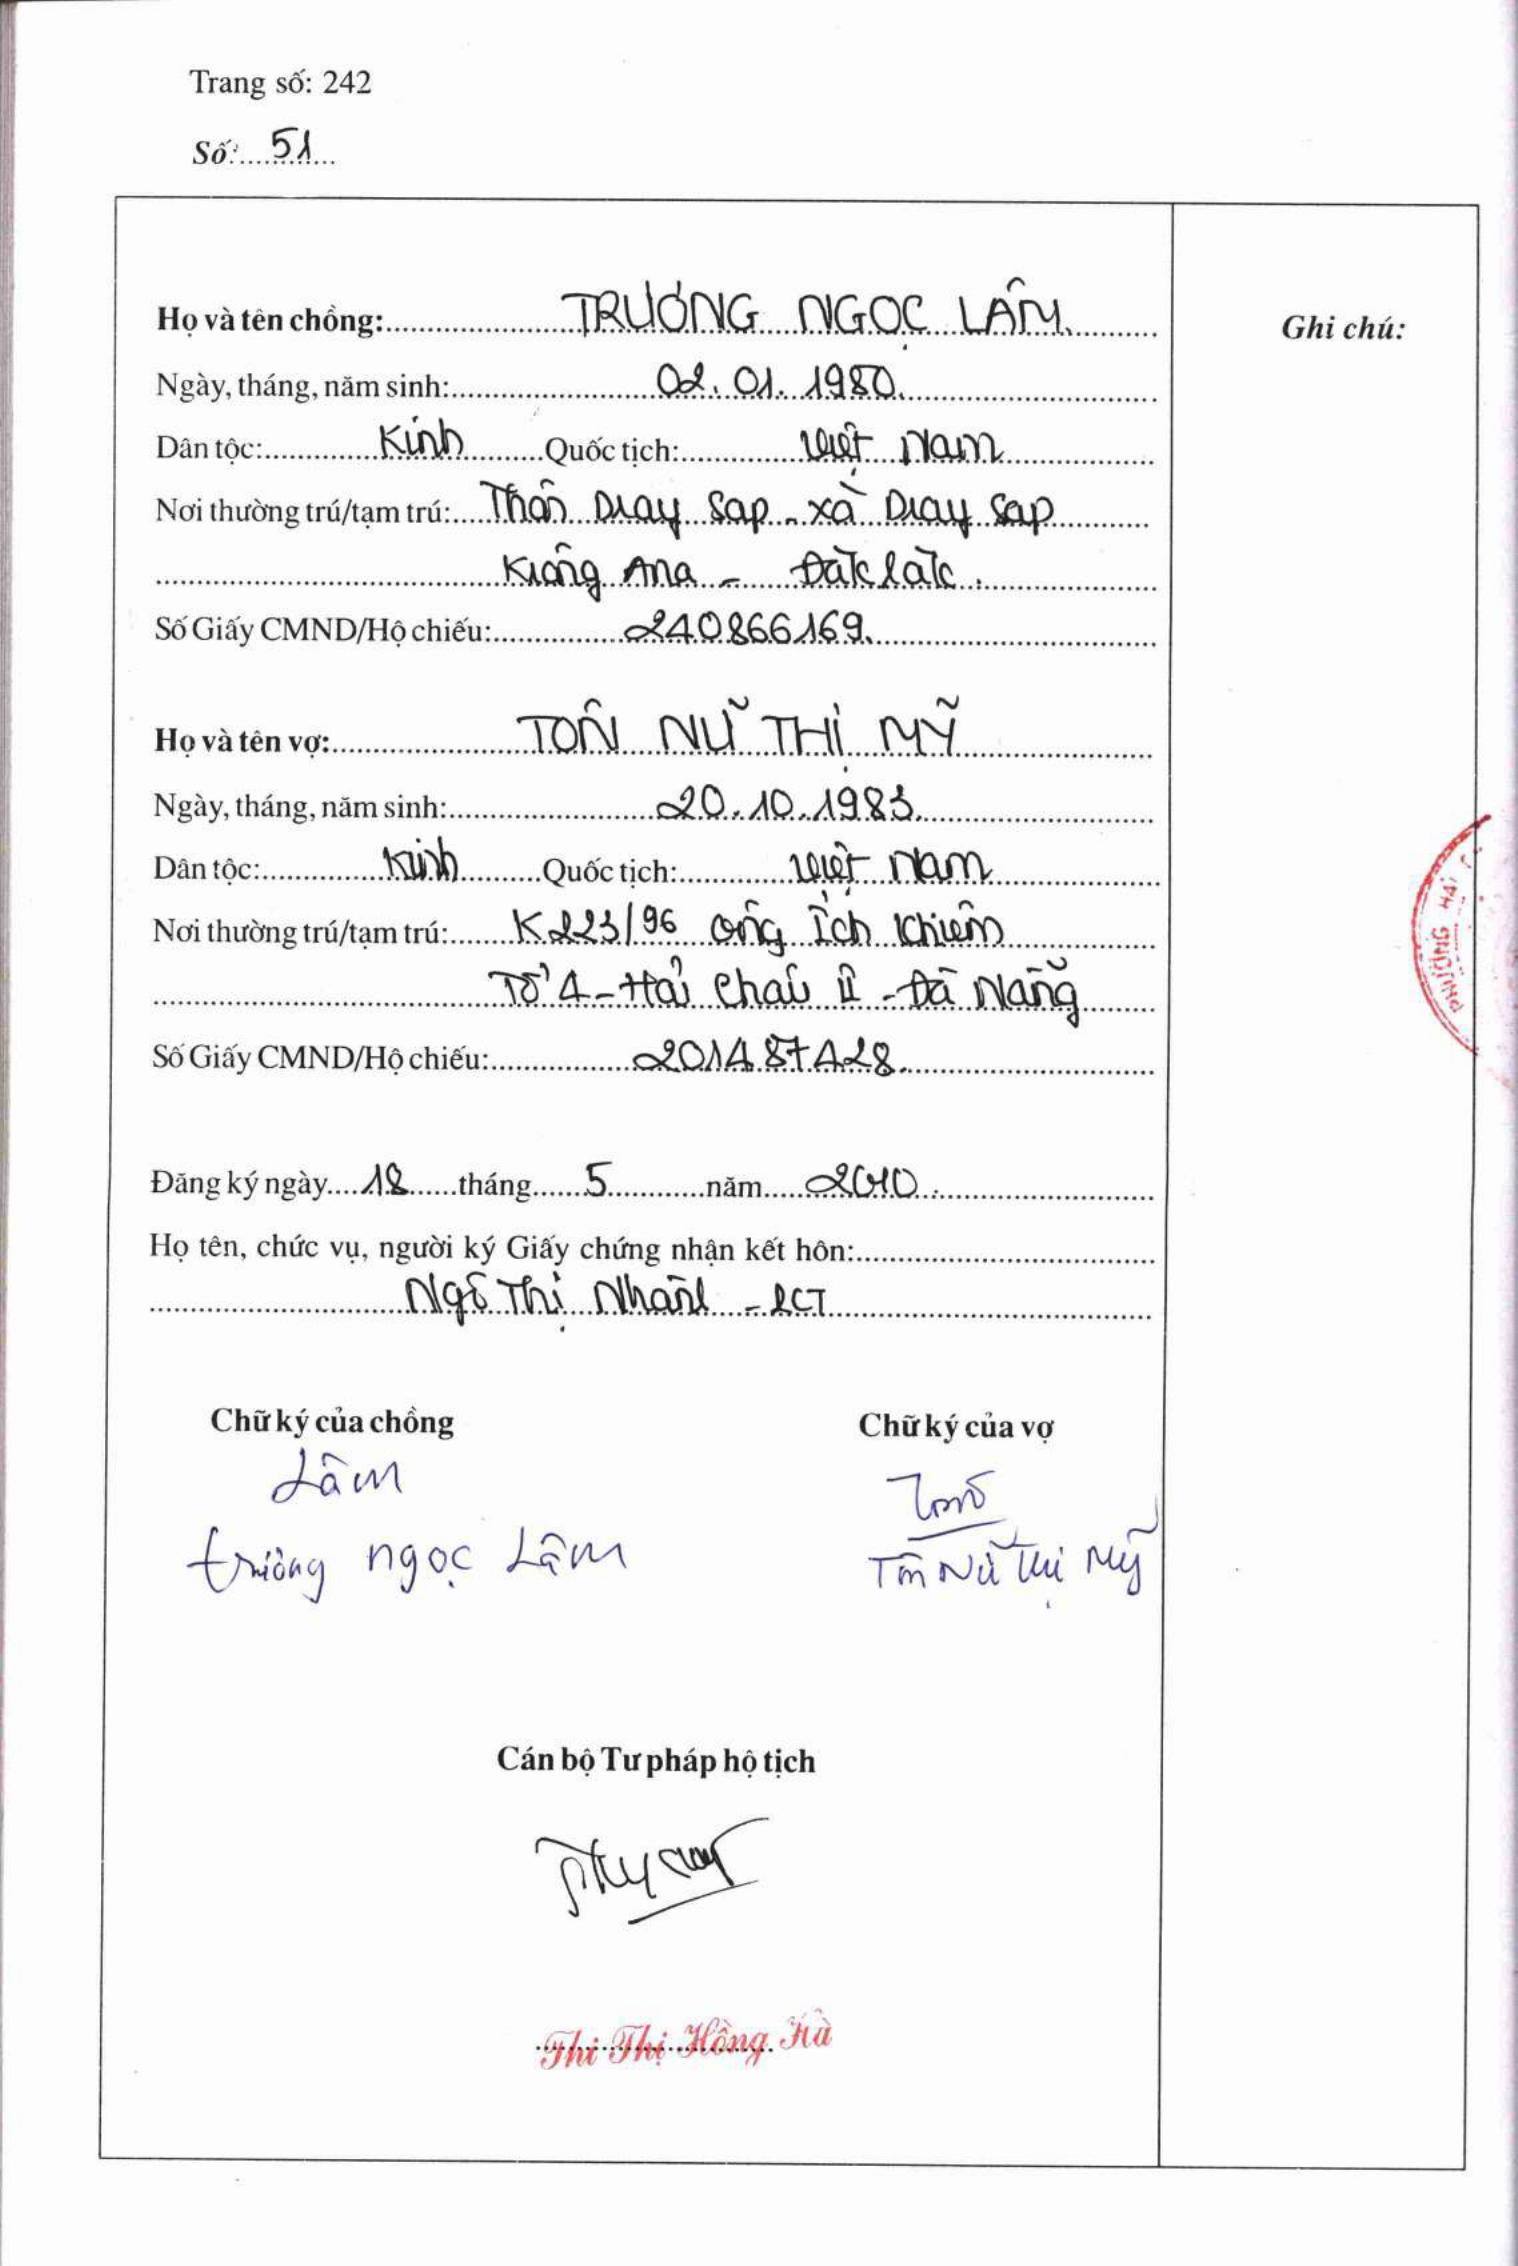 Trang số: 242
Số: 51
Họ và tên chồng: TRƯƠNG NGỌC LÂM
Ghi chú:
Ngày, tháng, năm sinh: 02.01.1980
Dân tộc: Kinh Quốc tịch: Việt Nam
Nơi thường trú/tạm trú: Thôn Dray Sap - xã Dray Sap
Krông Ana - Đăk lăk.
Số Giấy CMND/Hộ chiếu: 240866169.
Họ và tên vợ: TÔN NỮ THỊ MỸ
Ngày, tháng, năm sinh: 20.10.1983
Dân tộc: Kinh Quốc tịch: Việt Nam
Nơi thường trú/tạm trú: K223/96 Ông Ích Khiêm
Tổ 4 - Hải Châu II - Đà Nẵng
Số Giấy CMND/Hộ chiếu: 201487428.
Đăng ký ngày 18 tháng 5 năm 2010
Họ tên, chức vụ, người ký Giấy chứng nhận kết hôn:
Ngô Thị Nhân - PCT
Chữ ký của chồng
Chữ ký của vợ
Lâm
Trương Ngọc Lâm
Tôn Nữ Thị Mỹ
Cán bộ Tư pháp hộ tịch
Thi Thị Hồng Hà
PHƯỜNG HẢI